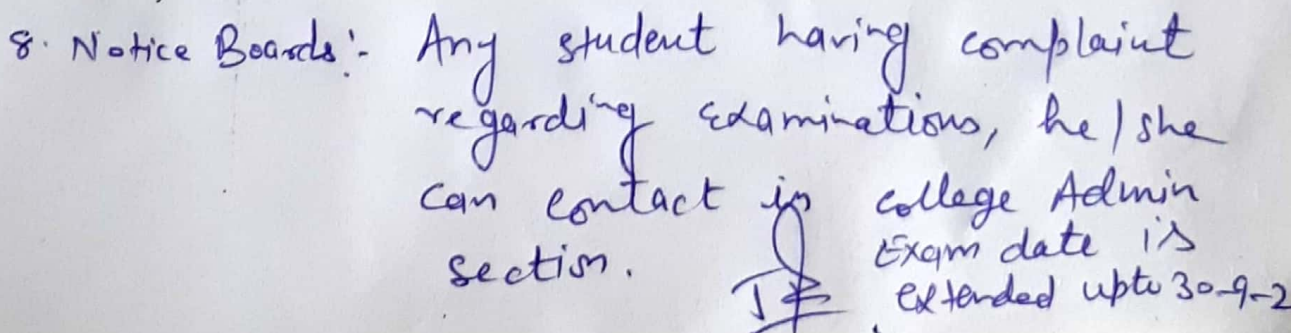 8. Notice Boards:- Any student having complaint
regarding examinations, he/she
can contact in college Admin
section.
Exam date is
extended upto 30-9-2